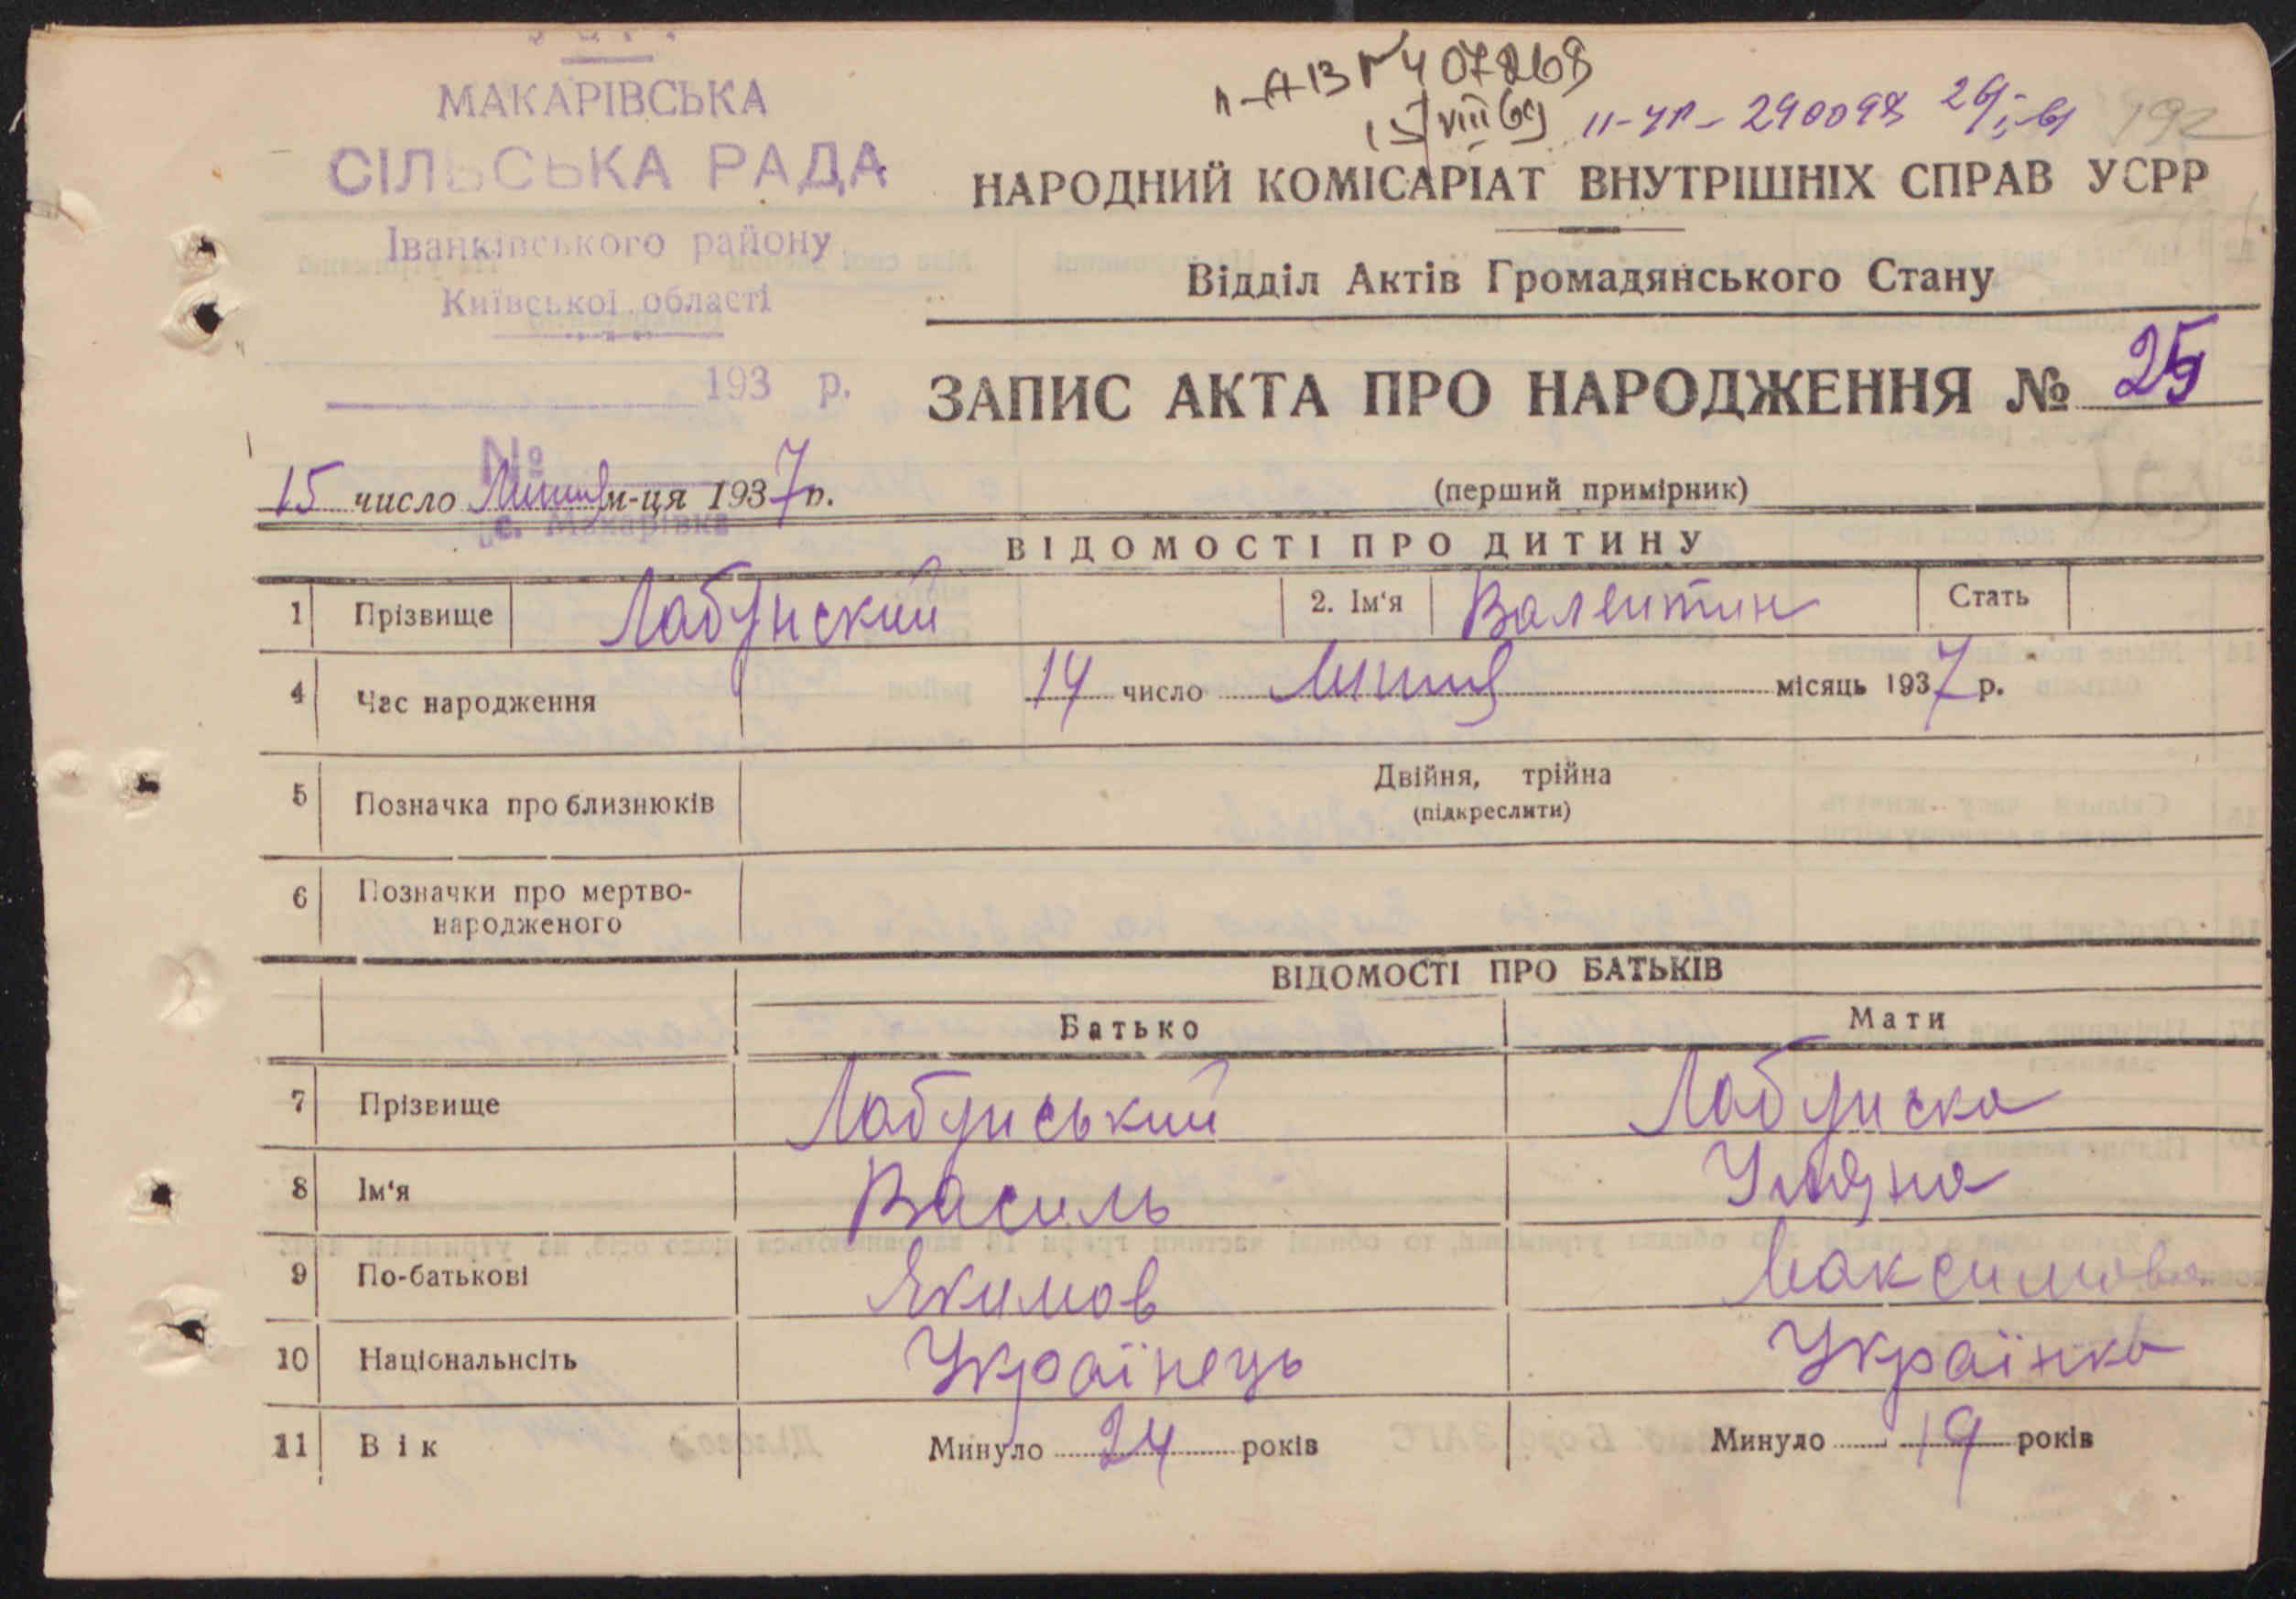 МАКАРІВСЬКА
СІЛЬСЬКА РАДА
Іванківського району
Київської області
193 р.
№
с. Макарівка
II-УР- 290098
192
НАРОДНИЙ КОМІСАРІАТ ВНУТРІШНІХ СПРАВ УСРР
Відділ Актів Громадянського Стану
ЗАПИС АКТА ПРО НАРОДЖЕННЯ № 25
15 число Липня м-ця 1937 р.
(перший примірник)
ВІДОМОСТІ ПРО ДИТИНУ
1 Прізвище Лабунский 2. Ім‘я Валентин Стать
4 Час народження 14 число Липня місяць 1937 р.
5 Позначка про близнюків Двійня, трійна
(підкреслити)
6 Позначки про мертво-
народженого
ВІДОМОСТІ ПРО БАТЬКІВ
Батько Мати
7 Прізвище Лабунський Лабунска
8 Ім‘я Василь Уляна
9 По-батькові Якимов Максимова
10 Національнсіть Українець Українка
11 Вік Минуло 24 років Минуло 19 років